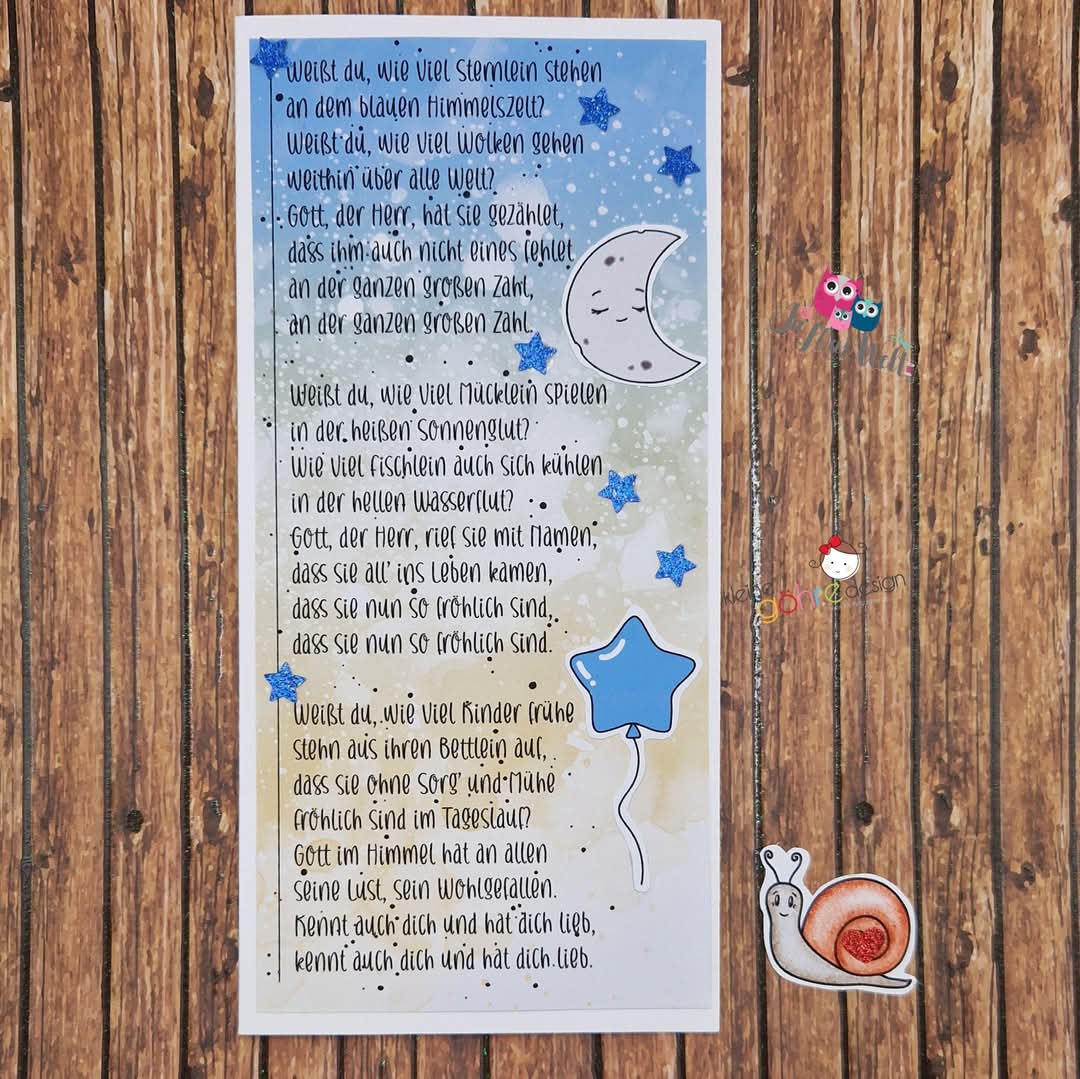 Weißt du, wie viel Sternlein stehen
an dem blauen Himmelszelt?
Weißt du, wie viel Wolken gehen
weithin über alle Welt?
Gott, der Herr, hat sie gezählet,
dass ihm auch nicht eines fehlet
an der ganzen großen Zahl,
an der ganzen großen Zahl.
Weißt du, wie viel Mücklein spielen
in der heißen Sonnenglut?
Wie viel Fischlein auch sich kühlen
in der hellen Wasserflut?
Gott, der Herr, rief sie mit Namen,
dass sie all' ins Leben kamen,
dass sie nun so fröhlich sind,
dass sie nun so fröhlich sind.
Weißt du, wie viel Kinder frühe
stehn aus ihren Bettlein auf,
dass sie ohne Sorg' und Mühe
fröhlich sind im Tageslauf?
Gott im Himmel hat an allen
seine Lust, sein Wohlgefallen.
Kennt auch dich und hat dich lieb,
kennt auch dich und hat dich lieb.
kleine göhre design